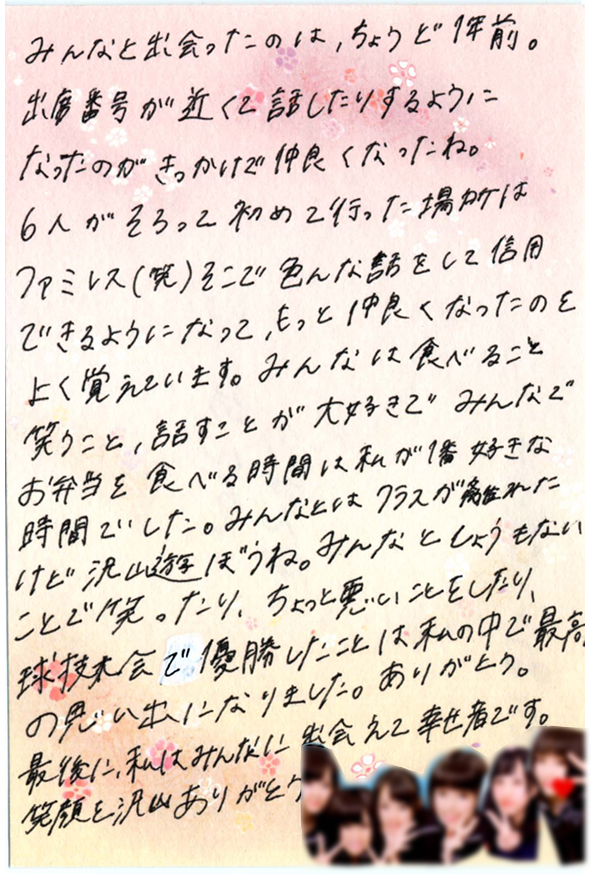 みんなと出会ったのは、ちょうど1年前。
出席番号が近くて話したりするように
なったのがきっかけで仲良くなったね。
6人がそろって初めて行った場所は
ファミレス(笑)そこで色んな話をして信用
できるようになって、もっと仲良くなったのを
よく覚えています。みんなは食べること
笑うこと、話すことが大好きで みんなで
お弁当を食べる時間は私が1番好きな
時間でした。みんなとはクラスが離れた
けど沢山遊ぼうね。みんなとしょうもない
ことで笑ったり、ちょっと悪いことをしたり、
球技大会で優勝したことは私の中で最高
の思い出になりました。ありがとう。
最後に、私はみんなに出会えて幸せ者です。
笑顔を沢山ありがとう